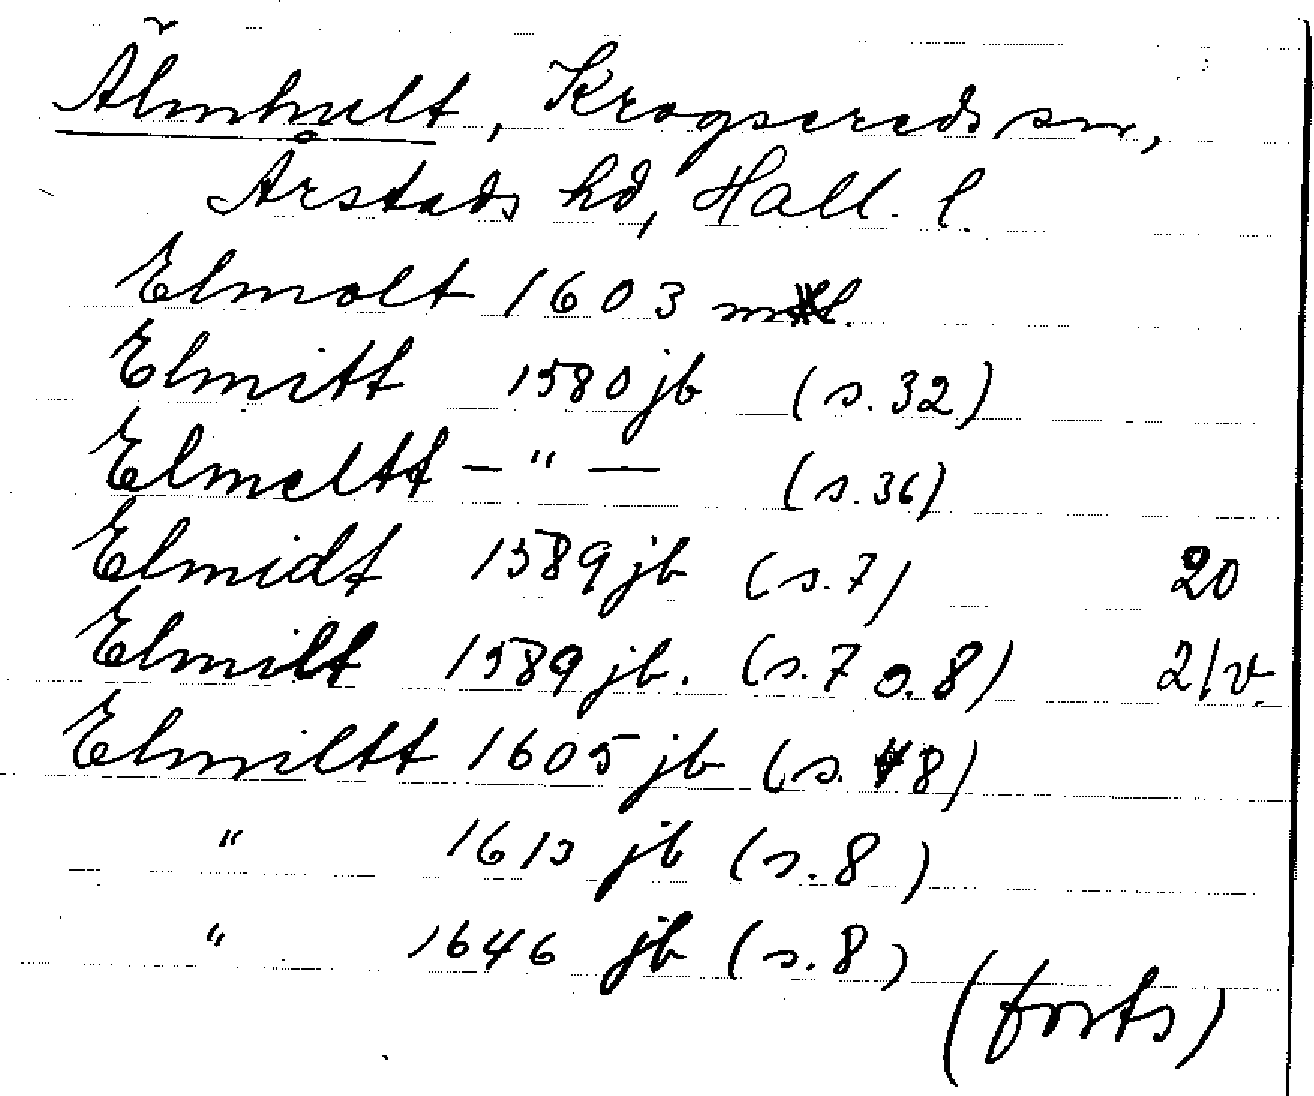 Älmhult, Krogsereds sn,
Årstads hd, Hall. l.
Elmolt 1603 mtl.
Elmitt 1580 jb (s. 32)
Elmeltt — " — (s. 36)
Elmidt 1589 jb (s. 7) 20
Elmilt 1589 jb. (s. 7 o. 8) 21 v.
Elmiltt 1605 jb (s. 8)
" 1613 jb (s. 8)
" 1646 jb (s. 8)
(forts)